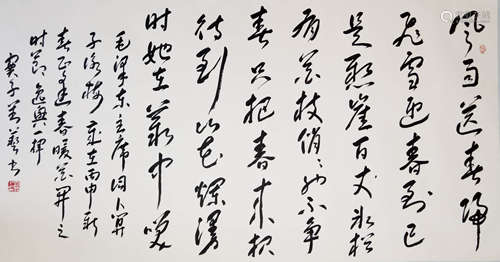 风雨送春归
飞雪迎春到已
是悬崖百丈冰犹
有花枝俏俏也不争
春只把春来报
待到山花烂漫
时她在丛中笑
毛泽东主席词卜算
子咏梅 岁在丙申新
春正逢春暖花开之
时节逸兴一挥